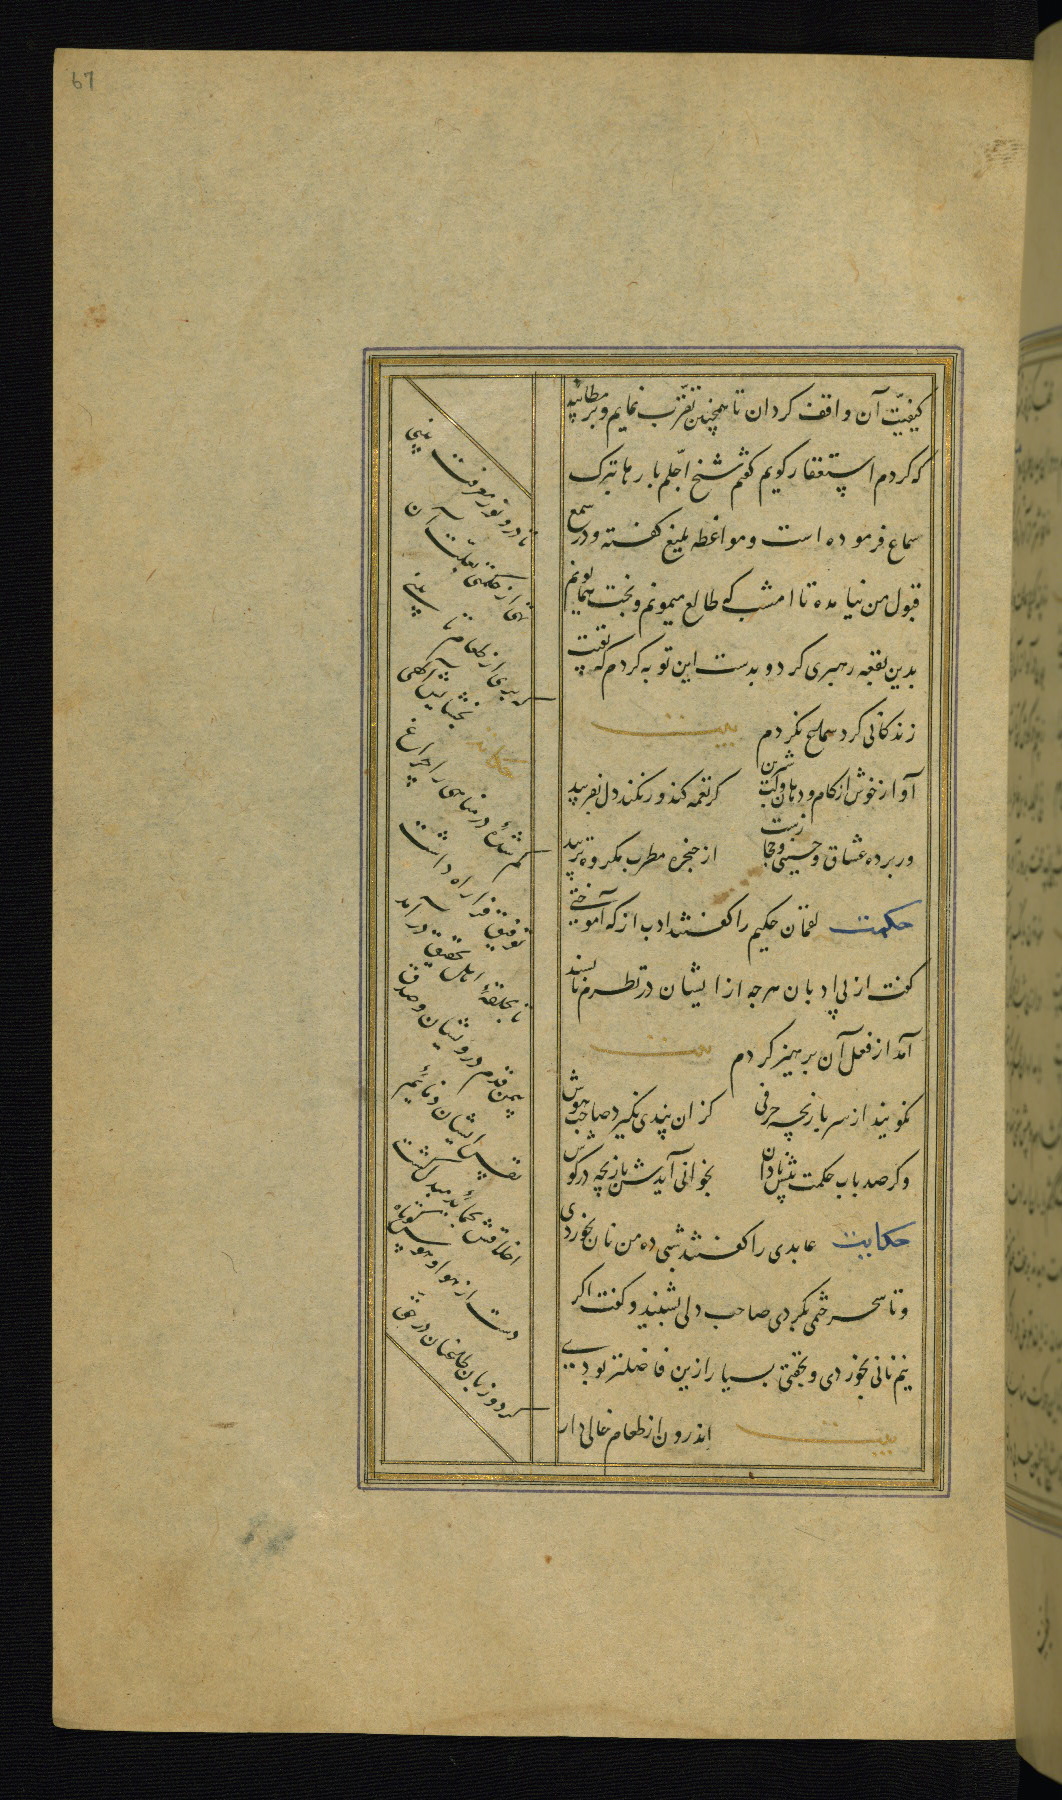 67
کیفیّت آن واقف کردان تا همچنین تقرّب نمایم و بر مطایبه
که کردم استغفار کویم کفتم شیخ اجّلم بارها بترک
سماع فرموده است و مواعظه بلیغ کفته و در سمع
قبول من نیامده تا امشب که طالع میمونم و بخت همایونم
بدین بقعه رهبری کرد و بدست این توبه کردم که بقیت
زندکانی کرد سماع نکردم بیت
آواز خوش از کام و دهان و لب شیرین کر نغمه کند ور نکند دل بفریبد
ور پرده عشاق و حسینی و حجازست از حنجره مطرب مکروه نزیبد
حکمت لقمان حکیم را کفتند ادب از که آموختی
کفت از بی ادبان هرچه از ایشان در نظرم ناپسند
آمد از فعل آن پرهیز کردم بیت
نکویند از سر بازیچه حرفی کزان پندی نکیرد صاحب هوش
وکر صد باب حکمت پیش نادان بخوانی آیدش بازیچه در کوش
حکایت عابدی را کفتند شبی ده من نان بخوردی
و تا سحر ختمی بکردی صاحب دلی بشنید و کفت اکر
نیم نانی بخوردی و بخفتی بسیار ازین فاضلتر بودی
بیت اندرون از طعام خالی دار
تا درو نور معرفت بینی
تهی از حکمتی بعلّت آن
که پری از طعام تا بینی
حکایت بخشایش آلهی
کم شدهٔ در مناهی را چراغ
توفیق فرا راه داشت
تا بحلقهٔ اهل تحقیق در آمد
بیمن قدم درویشان و صدق
نفس ایشان ذمائیم
اخلاقش بحمائد مبدل کشت
دست از هوا و هوس کوتاه
کرد و زبان طاعنان در حق